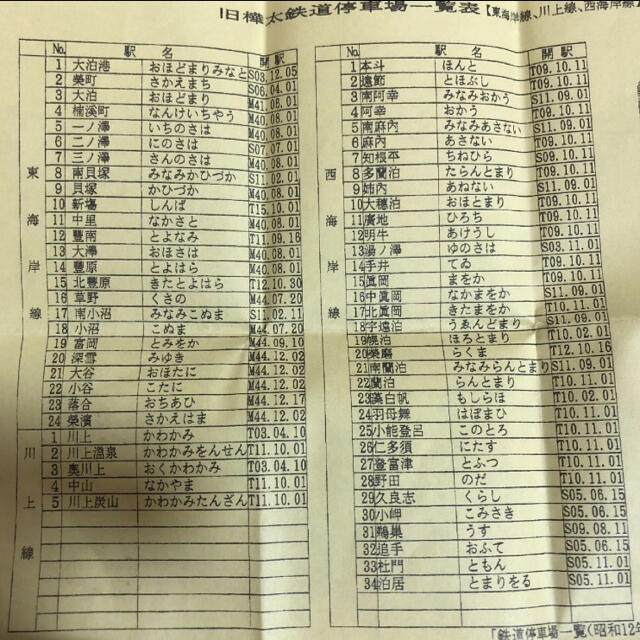 旧樺太鉄道停車場一覧表【東海岸線、川上線、西海岸線】
No. 駅 名 開 駅
東海岸線
1 大泊港 おほどまりみなと S03.12.05
2 榮町 さかえまち S06.04.01
3 大泊 おほどまり M41.08.01
4 楠溪町 なんけいちやう M40.08.01
5 一ノ澤 いちのさは M40.08.01
6 二ノ澤 にのさは S07.07.01
7 三ノ澤 さんのさは M40.08.01
8 南貝塚 みなみかひづか S11.02.01
9 貝塚 かひづか M40.08.01
10 新場 しんば T15.10.01
11 中里 なかさと M40.08.01
12 豐南 とよなみ T11.09.16
13 大澤 おほさは M40.08.01
14 豐原 とよはら M40.08.01
15 北豐原 きたとよはら T12.10.30
16 草野 くさの M44.07.20
17 南小沼 みなみこぬま S11.02.11
18 小沼 こぬま M44.07.20
19 富岡 とみをか M44.09.10
20 深雪 みゆき M44.12.02
21 大谷 おほたに M44.12.02
22 小谷 こたに M44.12.02
23 落合 おちあひ M44.12.17
24 榮濱 さかえはま M44.12.02
川上線
1 川上 かわかみ T03.04.10
2 川上溫泉 かわかみをんせん T11.10.01
3 奧川上 おくかわかみ T03.04.10
4 中山 なかやま T11.10.01
5 川上炭山 かわかみたんざん T11.10.01
No. 駅 名 開 駅
西海岸線
1 本斗 ほんと T09.10.11
2 遠節 とほぶし T09.10.11
3 南阿幸 みなみおかう S11.09.01
4 阿幸 おかう T09.10.11
5 南麻內 みなみあさない S11.09.01
6 麻內 あさない T09.10.11
7 知根平 ちねひら S09.10.11
8 多蘭泊 たらんとまり T09.10.11
9 姉內 あねない S11.09.01
10 大穗泊 おほとまり T09.10.11
11 廣地 ひろち T09.10.11
12 明牛 あけうし T09.10.11
13 湯ノ澤 ゆのさは S03.11.01
14 手井 てゐ T09.10.11
15 眞岡 まをか T09.10.11
16 中眞岡 なかまをか S11.09.01
17 北眞岡 きたまをか T09.10.11
18 宇遠泊 うゑんどまり S11.09.01
19 幌泊 ほろとまり T10.02.01
20 樂磨 らくま T12.10.16
21 南蘭泊 みなみらんとまり S11.09.01
22 蘭泊 らんとまり T10.11.01
23 藻白帆 もしらほ T10.02.01
24 羽母舞 はぼまひ T10.11.01
25 小能登呂 このとろ T10.11.01
26 仁多須 にたす T10.11.01
27 登富津 とふつ T10.11.01
28 野田 のだ T10.11.01
29 久良志 くらし S05.06.15
30 小岬 こみさき S05.06.15
31 鵜巢 うす S09.08.11
32 追手 おふて S05.06.15
33 杜門 ともん S05.11.01
34 泊居 とまりをる S05.11.01
「鉄道停車場一覧(昭和12年